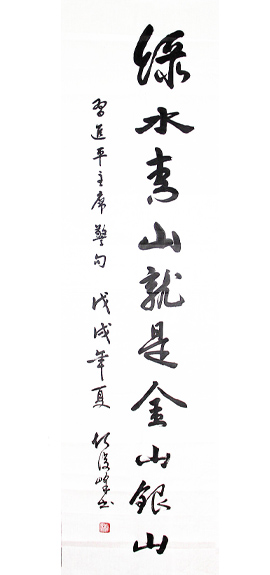 緑水青山就是金山銀山
习近平主席警句 戊戌年夏 任俊峰书